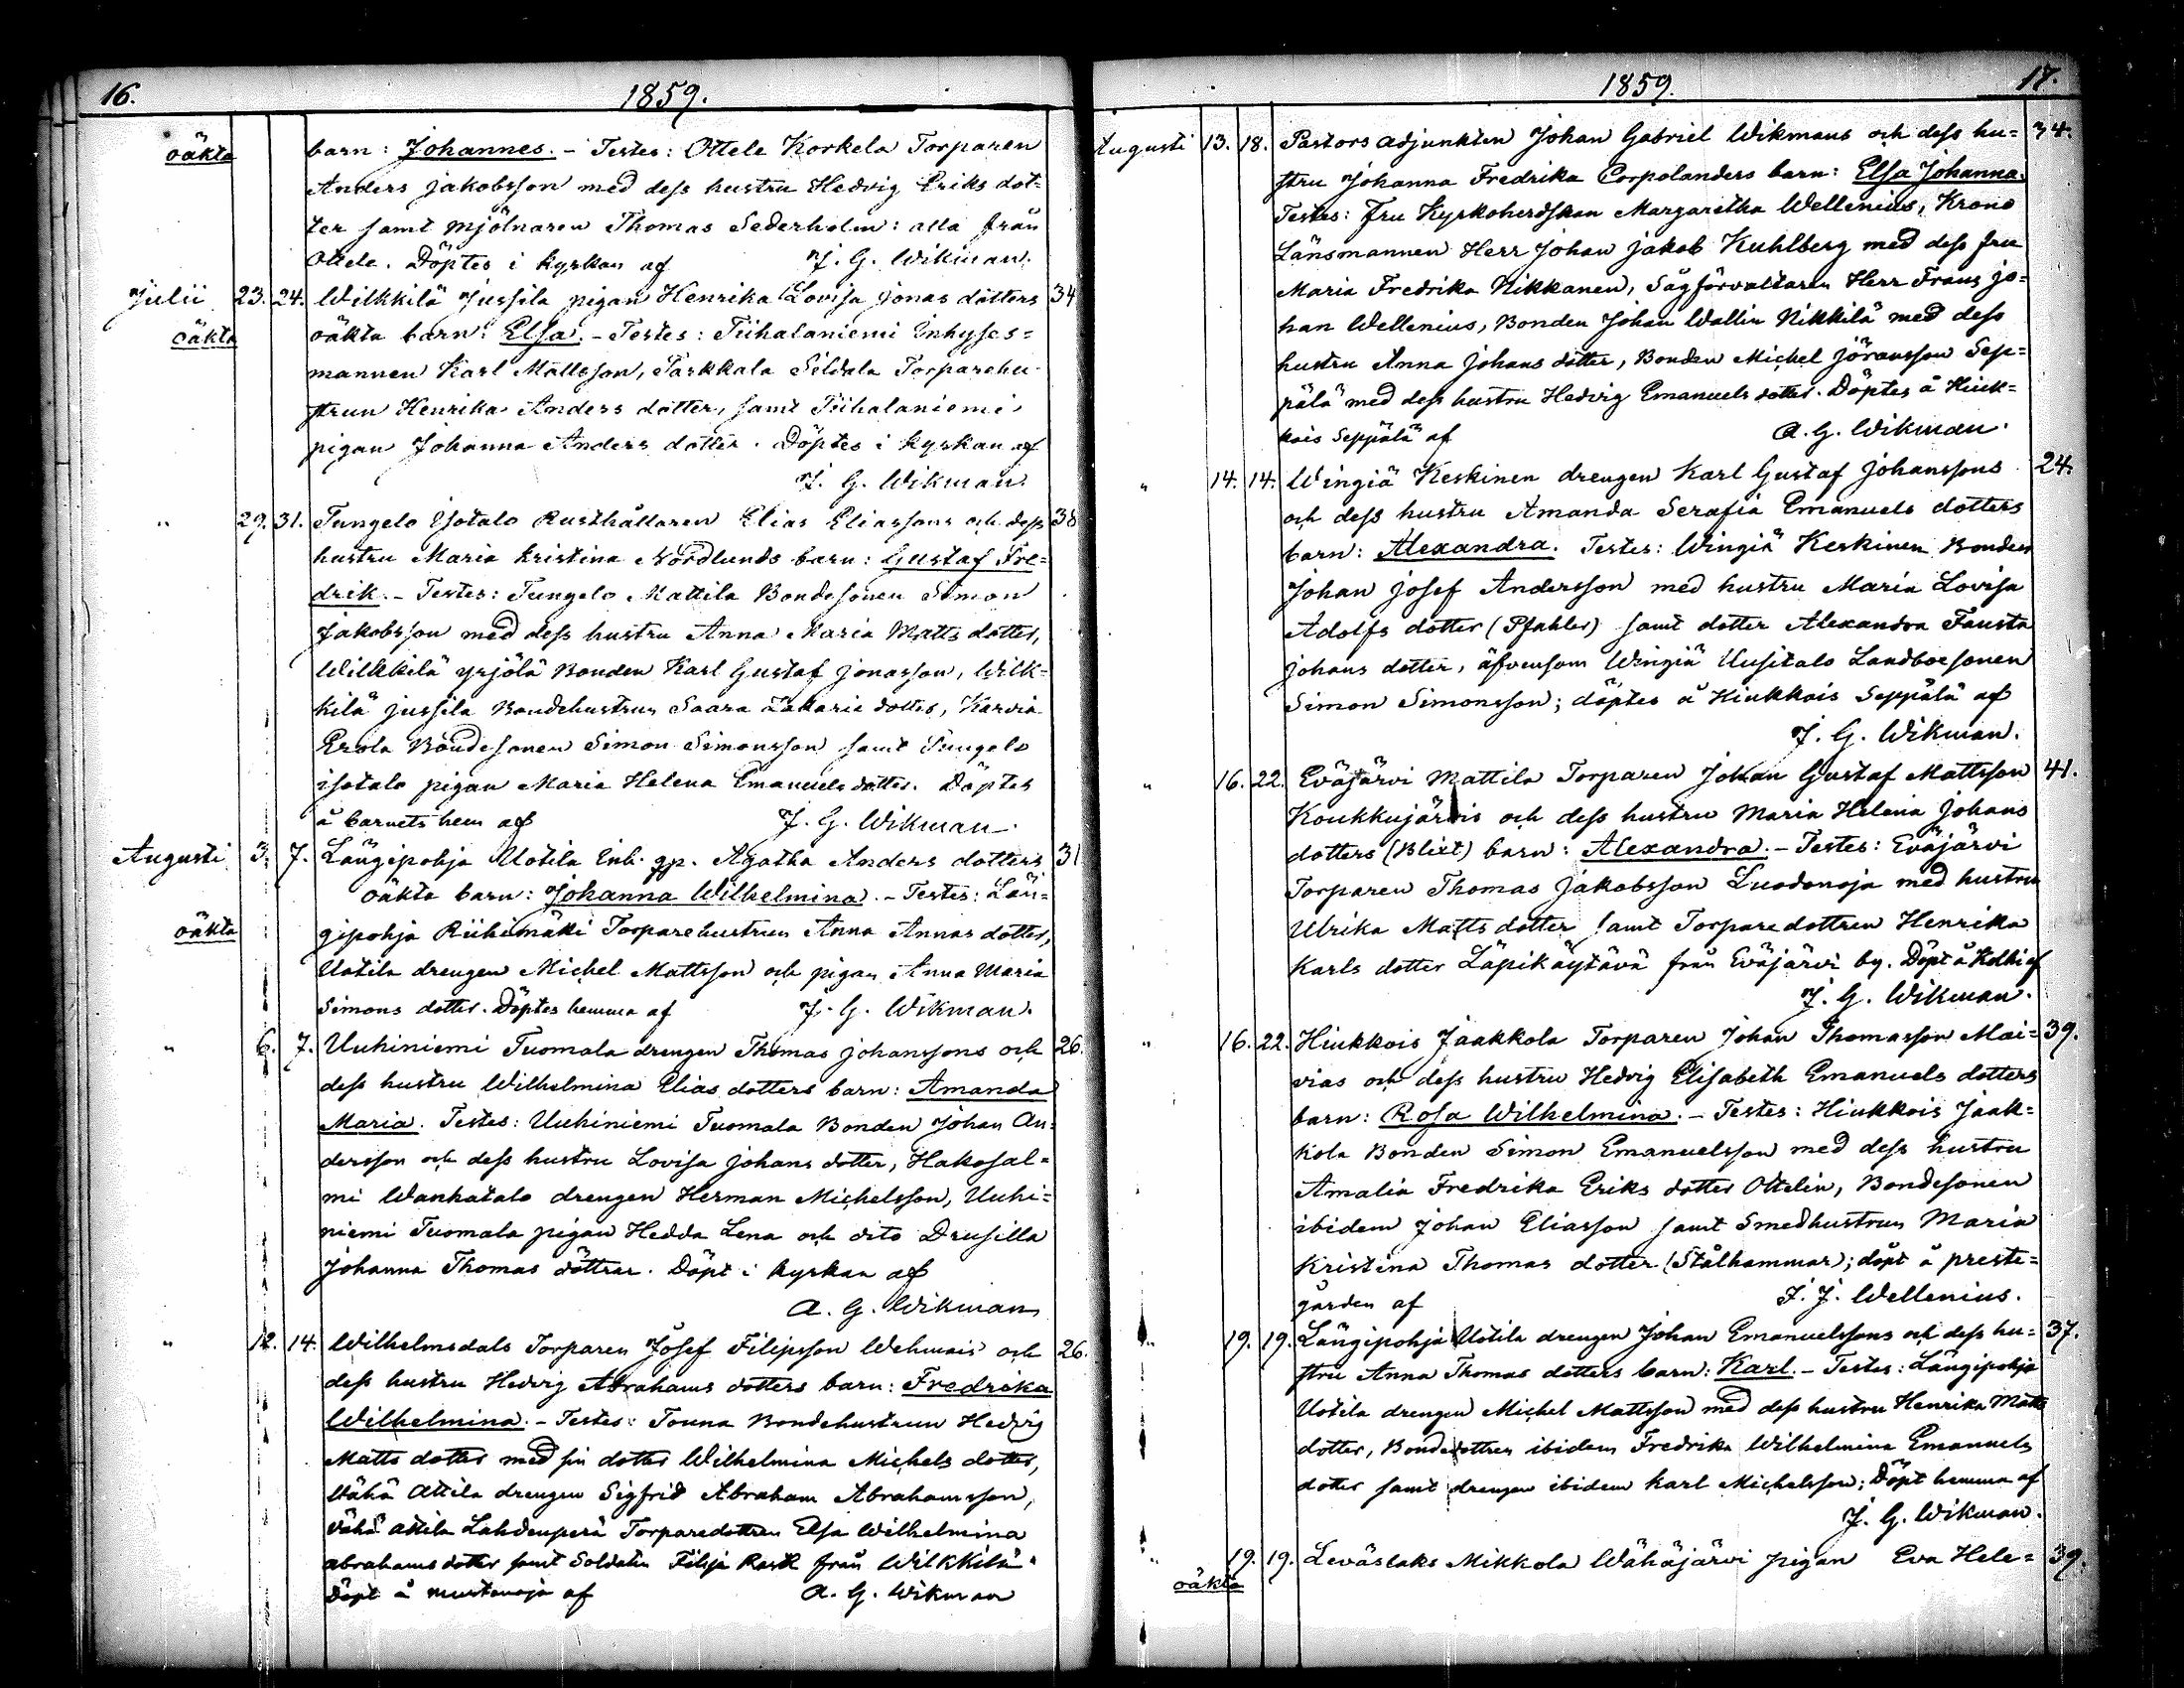 16.
1859.
oäkta
barn: Johannes. - Testes: Ottele Korkela Torparen
Anders Jakobsson med dess hustru Hedvig Eriks dot-
ter samt mjölnaren Thomas Sederholm: alla från
Ottele. Döptes i kyrkan af J. G. Wikman.
Julii 23. 24. Wilkkilä Jussila pigan Henrika Lovisa Jonas dotters 34
oäkta oäkta barn: Elsa. - Testes: Tiihalaniemi Inhyses=
mannen Karl Mattsson, Tarkkala Seldala Torparehu-
strun Henrika Anders dotter, samt Tiihalaniemi
pigan Johanna Anders dotter. Döptes i kyrkan af
J. G. Wikman.
" 29. 31. Tungelo Isotalo Rusthållaren Elias Eliassons och dess 38
hustru Maria Kristina Nordlunds barn: Gustaf Fre=
drik. - Testes: Tungelo Mattila Bondesonen Simon
Jakobsson med dess hustru Anna Maria Matts dotter,
Wilkkilä Yrjölä Bonden Karl Gustaf Jonasson, Wilk=
kilä Jussila Bondehustrun Saara Zakarie dotter, Karvia
Erola Bondesonen Simon Simonsson samt Tungelo
isotalo pigan Maria Helena Emanuels dotter. Döptes
å barnets hem af J. G. Wikman.
Augusti 3. 7. Längipohja Uotila Enk. gp. Agatha Anders dotters 31
oäkta barn: Johanna Wilhelmina. - Testes: Län=
oäkta gipohja Riihimäki Torparehustrun Anna Annas dotter,
Uotila drengen Michel Mattsson och pigan Anna Maria
Simons dotter. Döptes hemma af J. G. Wikman.
" 6. 7. Uuhiniemi Tuomala drengen Thomas Johanssons och 26.
dess hustru Wilhelmina Elias dotters barn: Amanda
Maria. Testes: Uuhiniemi Tuomala Bonden Johan An=
dersson och dess hustru Lovisa Johans dotter, Hakosal=
mi Wanhatalo drengen Herman Michelsson, Uuhi=
niemi Tuomala pigan Hedda Lena och dito Drusilla
Johanna Thomas döttrar. Döpt i kyrkan af
A. G. Wikman
" 12. 14. Wilhelmsdals Torparen Josef Filipsson Wehmais och 26.
dess hustru Hedvig Abrahams dotters barn: Fredrika
Wilhelmina. - Testes: Touna Bondehustrun Hedvig
Matts dotter med sin dotter Wilhelmina Michels dotter,
Wähä Attila drengen Sigfrid Abraham Abrahamsson,
Vähä Attila Lahdenperä Torparedottren Elsa Wilhelmina
Abrahams dotter samt Soldaten Filip Rask från Wilkkilä.
Döpt å Mustanoja af A. G. Wikman
1859.
17.
Augusti 13. 18. Pastors adjunkten Johan Gabriel Wikmans och dess hu= 34.
stru Johanna Fredrika Corpolanders barn: Elsa Johanna.
Testes: Fru Kyrkoherdskan Margaretha Wellenius, Krono
Länsmannen Herr Johan Jakob Kuhlberg med dess fru
Maria Fredrika Nikkanen, Sågförvaltaren Herr Frans Jo=
han Wellenius, Bonden Johan Wallin Nikkilä med dess
hustru Anna Johans dotter, Bonden Michel Jöransson Sep=
pälä med dess hustru Hedvig Emanuels dotter. Döptes å Hiuk=
kois Seppälä af A. G. Wikman.
" 14. 14. Wingiä Keskinen drengen Karl Gustaf Johanssons 24.
och dess hustru Amanda Serafia Emanuels dotters
barn: Alexandra. Testes: Wingiä Keskinen Bonden
Johan Josef Andersson med hustru Maria Lovisa
Adolfs dotter (Pfahler) samt dotter Alexandra Fausta
Johans dotter, äfvensom Wingiä Uusitalo Landboesonen
Simon Simonsson; döptes å Hiukkois Seppälä af
J. G. Wikman.
" 16. 22. Eväjärvi Mattila Torparen Johan Gustaf Mattsson 41.
Koukkujärvis och dess hustru Maria Helena Johans
dotters (Blixt) barn: Alexandra. - Testes: Eväjärvi
Torparen Thomas Jakobsson Luodonoja med hustru
Ulrika Matts dotter samt Torpare dottren Henrika
Karls dotter Läpikäytävä från Eväjärvi by. Döpt å Kolhi af
J. G. Wikman.
" 16. 22. Hiukkois Jaakkola Torparen Johan Thomasson Mai= 39.
vias och dess hustru Hedvig Elisabeth Emanuels dotters
barn: Rosa Wilhelmina. - Testes: Hiukkois Jaak=
kola Bonden Simon Emanuelsson med dess hustru
Amalia Fredrika Eriks dotter Ottelin, Bondesonen
ibidem Johan Eliasson samt Smedhustrun Maria
Kristina Thomas dotter (Stålhammar); döpt å preste=
gården af F. J. Wellenius.
" 19. 19. Längipohja Uotila drengen Johan Emanuelssons och dess hu= 37.
stru Anna Thomas dotters barn: Karl. - Testes: Längipohja
Uotila drengen Michel Mattsson med dess hustru Henrika Matts
dotter, Bondedottren ibidem Fredrika Wilhelmina Emanuels
dotter samt drengen ibidem Karl Michelsson; Döpt hemma af
J. G. Wikman.
" 19. 19. Leväslaks Mikkola Wähäjärvi pigan Eva Hele= 39.
oäkta